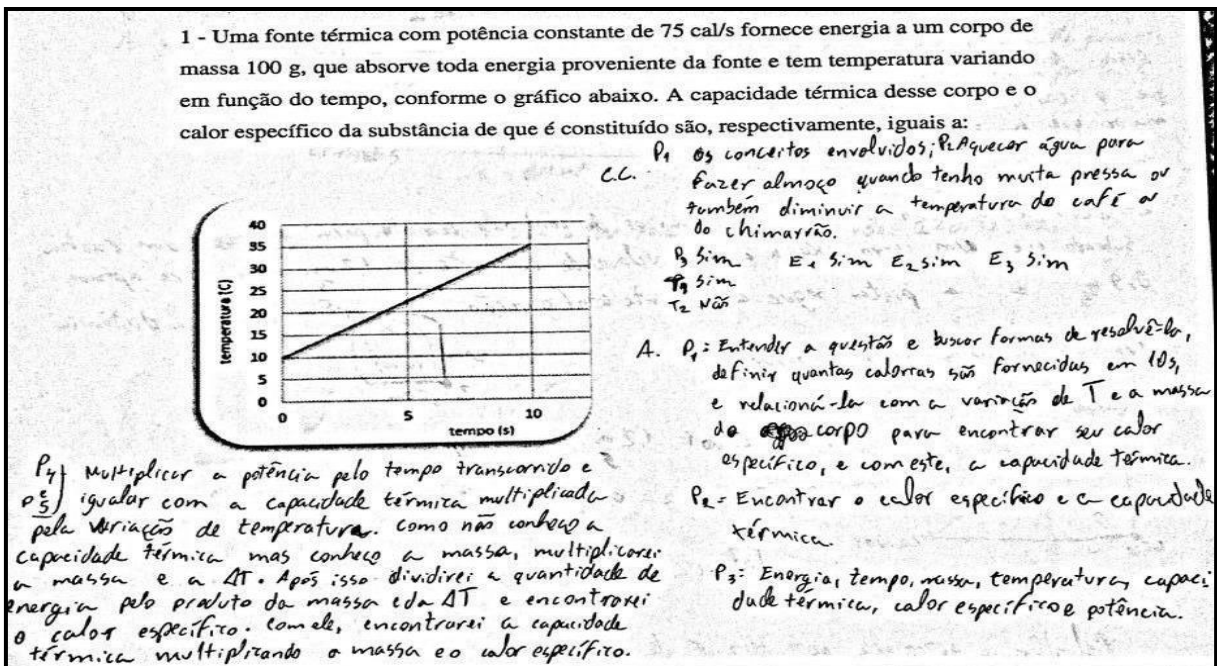 1 - Uma fonte térmica com potência constante de 75 cal/s fornece energia a um corpo de
massa 100 g, que absorve toda energia proveniente da fonte e tem temperatura variando
em função do tempo, conforme o gráfico abaixo. A capacidade térmica desse corpo e o
calor específico da substância de que é constituído são, respectivamente, iguais a:
C.C. P1 os conceitos envolvidos; P2 Aquecer água para
fazer almoço quando tenho muita pressa ou
também diminuir a temperatura do café ou
do chimarrão.
P3 Sim E1 Sim E2 sim E3 Sim
T1 Sim
T2 Não
temperatura (C)
40
35
30
25
20
15
10
5
0
0 5 10
tempo (s)
A. P1: Entender a questão e buscar formas de resolvê-la,
definir quantas calorias são fornecidas em 10s,
e relacioná-la com a variação de T e a massa
do corpo para encontrar seu calor
específico, e com este, a capacidade térmica.
P2 = Encontrar o calor específico e a capacidade
térmica.
P3: Energia, tempo, massa, temperatura, capaci
dade térmica, calor específico e potência.
P4 Multiplicar a potência pelo tempo transcorrido e
P5 igualar com a capacidade térmica multiplicada
pela variação de temperatura. Como não conheço a
capacidade térmica mas conheço a massa, multiplicarei
a massa e a ΔT. Após isso dividirei a quantidade de
energia pelo produto da massa e da ΔT e encontrarei
o calor específico. Com ele, encontrarei a capacidade
térmica multiplicando a massa e o calor específico.